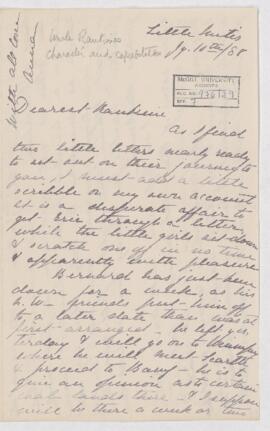 Little Metis
Jy. 10th/88
Uncle Rankine's
character and capabilities
With all love
Anna
McGILL UNIVERSITY
ARCHIVES
ACC. NO.
REF.
Dearest Rankine
As I find
this little letters nearly ready
to set out on their journey to
you, I must add a little
scribble on my own account
It is a desperate affair to
get Eric through a letter,
while the little girls sit down
& scratch one off in no time
& apparently with pleasure
Bernard has just been
down for a week, as his
N.W. friends put him off
to a later date than was at
first arranged. He left yes-
terday & will go on to Winnipeg
where he will meet
& proceed to Banff - he is to
give an opinion as to certain
coal lands there & I suppose
will be there a week or two